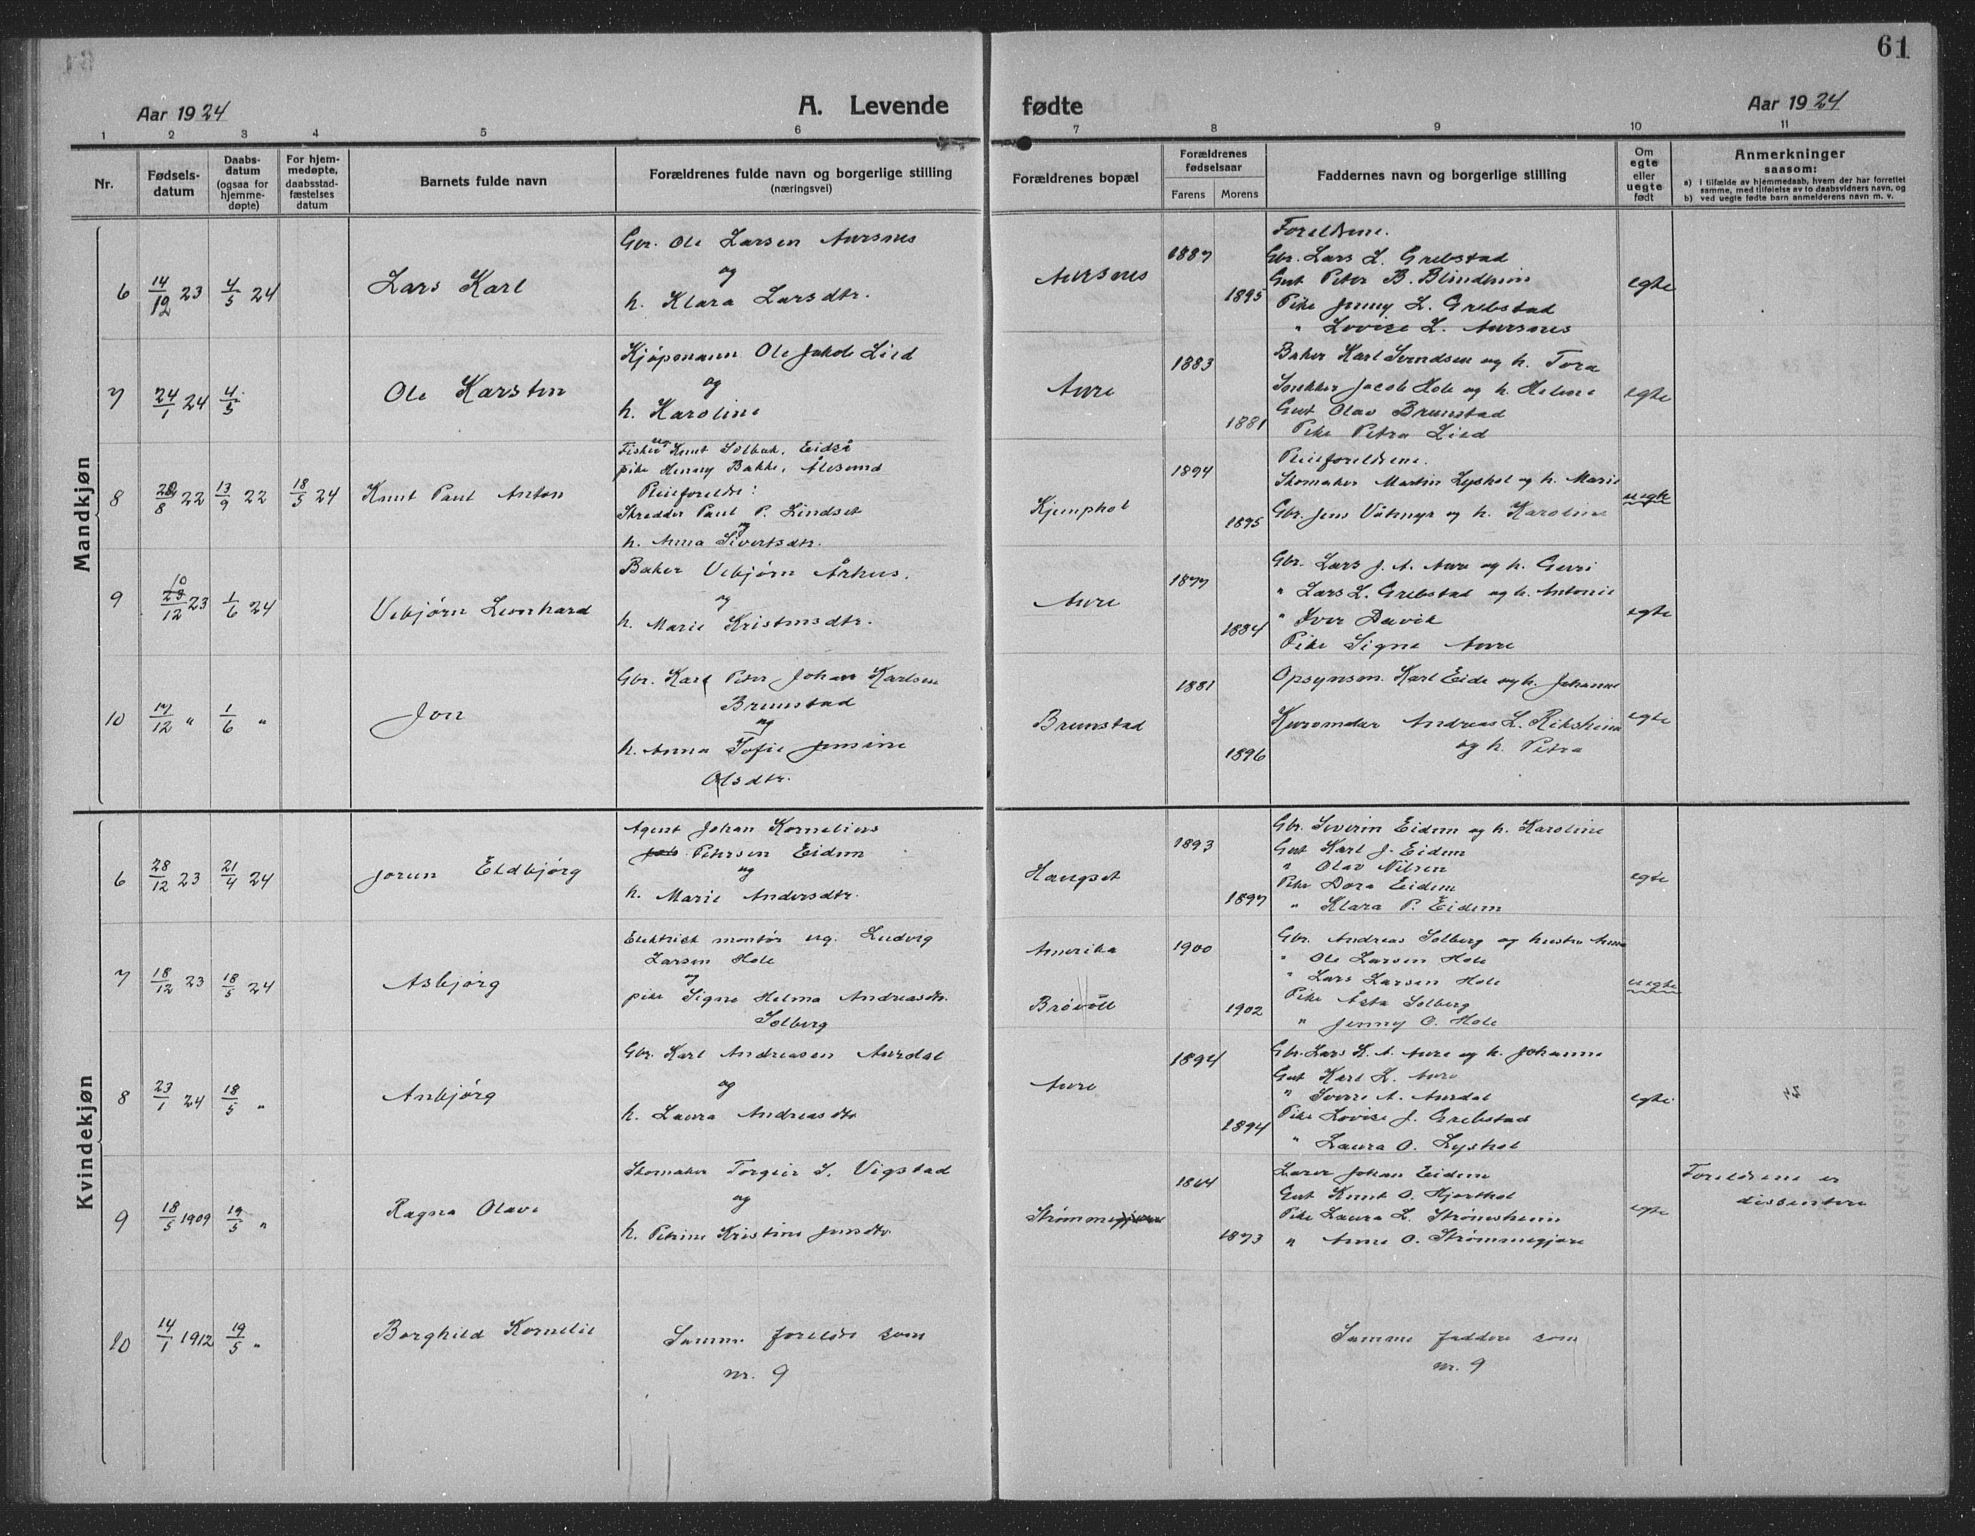 61
Aar 1924
A. Levende fødte
Aar 1924
1 2 3 4 5 6 7 8 9 10 11
Nr.
Fødsels-
datum
Daabs-
datum
(ogsaa for
hjemme-
døpte)
For hjem-
medøpte,
daabsstad-
fæstelses
datum
Barnets fulde navn
Forældrenes fulde navn og borgerlige stilling
(næringsvei)
Forældrenes bopæl
Forældrenes
fødselsaar
Farens Morens
Faddernes navn og borgerlige stilling
Om
egte
eller
uegte
født
Anmerkninger
saasom:
a) i tilfælde av hjemmedaab, hvem der har forrettet
samme, med tilføielse av to daabsvidners navn, og
b) ved uegte fødte barn anmelderens navn m. v.
Mandkjøn
6 14/12 23 4/5 24 Lars Karl
Gbr. Ole Larsen Aursnes
og
h. Klara Larsdtr.
Aursnes
1887
1895
Foreldrene.
Gbr. Lars L. Grebstad
Gut Peter B. Blindheim
Pike Jenny L. Grebstad
" Lovise L. Aursnes
egte
7 24/1 24 4/5 Ole Karsten
Kjøpmann Ole Jakob Lied
og
h. Karoline
Aure
1883
1881
Baker Karl Svendsen og h. Tora
Snekker Jacob Hole og h. Helene
Gut Olav Brunstad
Pike Petra Lied
egte
8 /8 22 13/9 22 18/5 24 Knut Paul Anton
Fisker Knut Solbak, Eidså
og
pike Henny Bakke, Ålesund
Pleieforeldre:
Skredder Paul P. Lindset
og
h. Anna Sivertsdtr.
Kjemphol
1894
1895
Pleieforeldrene.
Skomaker Martin Lyshol og h. Marie
Gbr. Jens Vatmyr og h. Karoline
uegte
9 /12 23 1/6 24 Vebjørn Leonhard
Baker Vebjørn Århus.
og
h. Marie Kristensdtr.
Aure
1877
1884
Gbr. Lars J. A. Aure og h. Guri
" Lars L. Grebstad og h. Antonie
" Iver Davik
Pike Signe Aure
egte
10 17/12 " 1/6 " Jon
Gbr. Karl Peter Johan Karlsen
Brunstad
og
h. Anna Sofie Jensine
Olsdtr.
Brunstad
1881
1896
Opsynsm. Karl Eide og h. Johanne
Andreas L. Riksheim
og h. Petra
egte
Kvindekjøn
6 28/12 23 21/4 24 Jorun Eldbjørg
Agent Johan Kornelius
Petersen Eidem
og
h. Marie Andersdtr.
Haugset
1893
1897
Gbr. Severin Eidem og h. Karoline
Gut Karl J. Eidem
" Olav Nilsen
Pike Dora Eidem
" Klara P. Eidem
egte
7 18/12 23 18/5 24 Asbjørg
Elektrisk montør ug. Ludvig
Larsen Hole
og
pike Signe Helma Andreasdtr.
Solberg
Amerika
Brøvoll
1900
1902
Gbr. Andreas Solberg og hustru Anna
" Ole Larsen Hole
" Lars Larsen Hole
Pike Åsta Solberg
" Jenny O. Hole
uegte
8 23/1 24 18/5 " Anbjørg
Gbr. Karl Andreasen Aurdal
og
h. Laura Andreasdtr
Aure
1894
1894
Gbr. Lars K. A. Aure og h. Johanne
Gut Karl K. Aure
" Sverre A. Aurdal
Pike Lovise J. Grebstad
" Laura O. Lyshol
egte.
9 18/5 1909 19/5 " Ragna Olave
Skomaker Torgeir S. Vigstad
og
h. Petrine Kristine Jensdtr.
1864
1873
Lærer Johan Eidem
Gut Knut O. Hjorthol
Pike Laura L. Strømsheim
" Anne O. Strømmegjære
egte
Foreldrene er
dissentere
10 14/1 1912 19/5 " Borghild Kornelie
Samme foreldre som
nr. 9
Samme faddere som
nr. 9